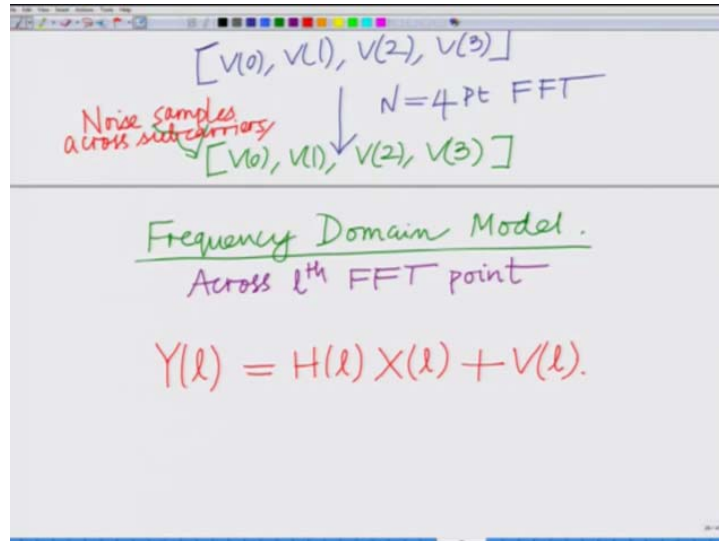 [V(0), V(1), V(2), V(3)]
N=4 Pt FFT
Noise samples
across subcarriers
[V(0), V(1), V(2), V(3)]
Frequency Domain Model.
Across lth FFT point
Y(l) = H(l) X(l) + V(l).